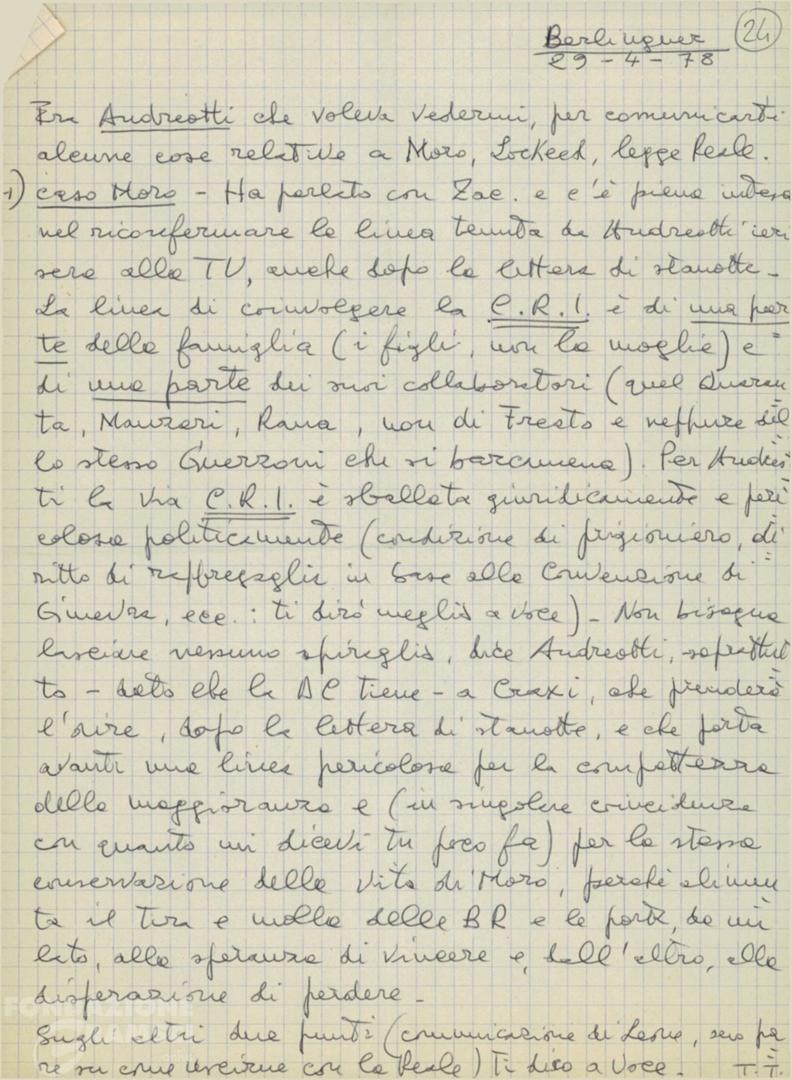 Berlinguer
24
29-4-78
Era Andreotti che voleva vedermi, per comunicarti
alcune cose relative a Moro, Lockeed, legge Reale.
1) caso Moro - Ha parlato con Zac. e c'è piena intesa
nel riconfermare la linea tenuta da Andreotti ieri
sera alla TV, anche dopo la lettera di stanotte -
La linea di coinvolgere la C.R.I. è di una par
te della famiglia (i figli, non la moglie) e
di una parte dei suoi collaboratori (quel Quaran
ta, Manzari, Rana, non di Freato e neppure del
lo stesso Guerzoni che si barcamena). Per Andreot
ti la via C.R.I. è sballata giuridicamente e peri
colosa politicamente (condizione di prigioniero, di
ritto di rappresaglia in base alla Convenzione di
Ginevra, ecc.: ti dirò meglio a voce) - Non bisogna
lasciare nessuno spiraglio, dice Andreotti, soprattut
to - dato che la DC tiene - a Craxi, che prenderà
l'aire, dopo la lettera di stanotte, e che porta
avanti una linea pericolosa per la compattezza
della maggioranza e (in singolare coincidenza
con quanto mi dicevi tu poco fa) per la stessa
conservazione della vita di Moro, perché alimen
ta il tira e molla delle BR e le porta, da un
lato, alla speranza di vincere e, dall'altro, alla
disperazione di perdere -
Sugli altri due punti (comunicazione di Leone, suo pa
re su come uscirne con la Reale) Ti dico a voce. T.T.
FONDAZIONE